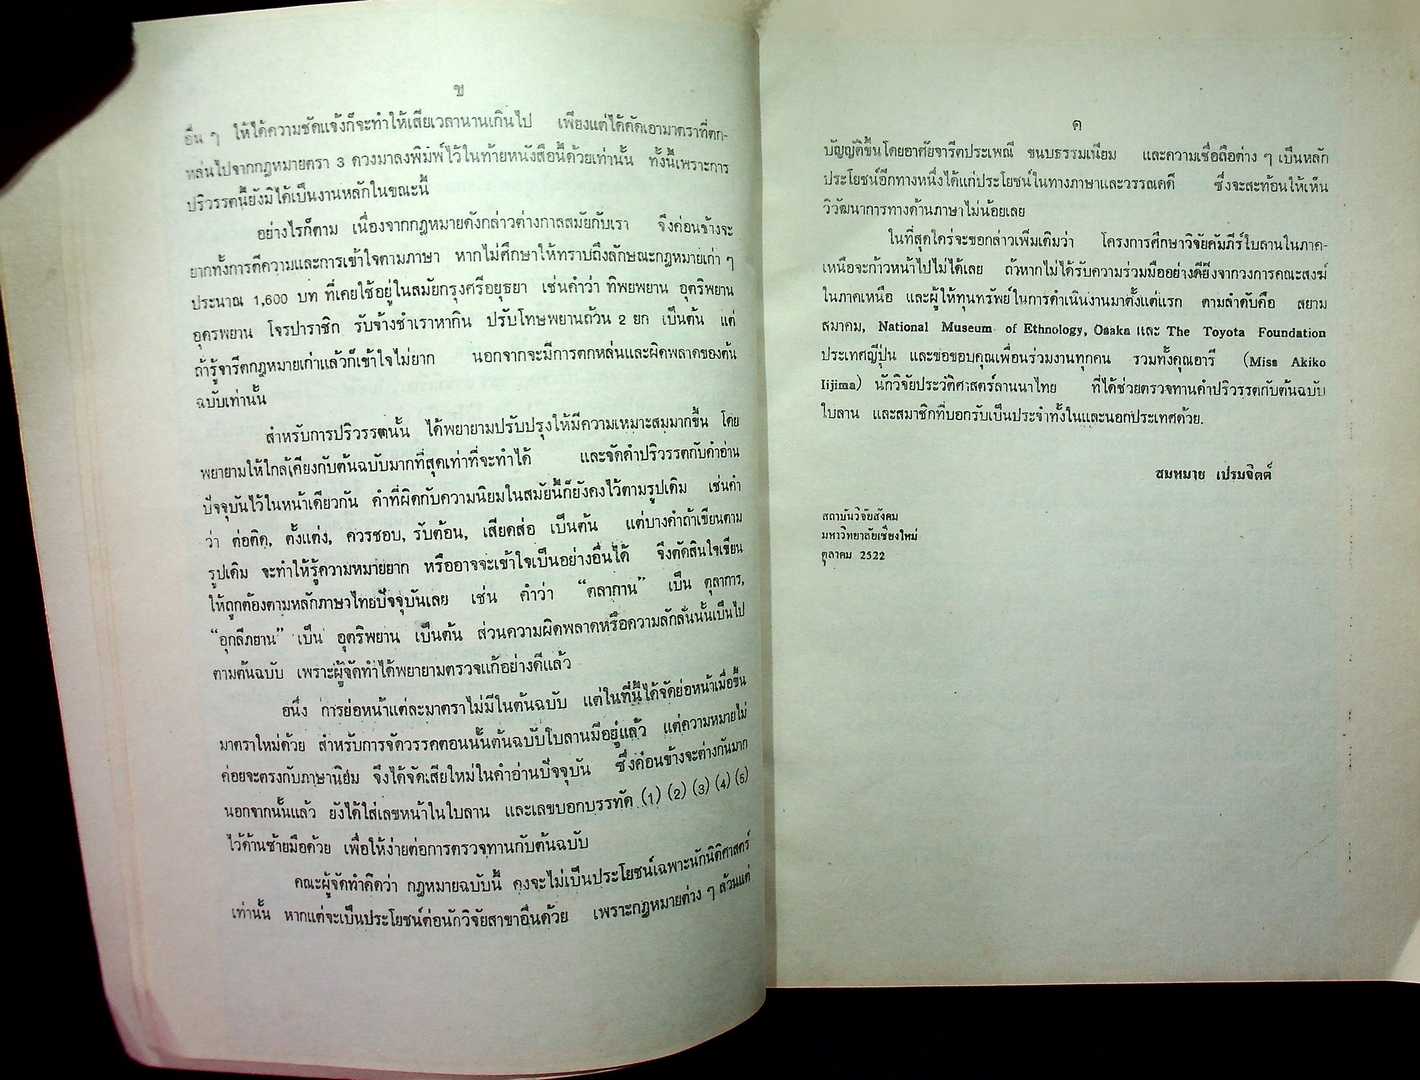 ข
อื่น ๆ ให้ได้ความชัดแจ้งก็จะทำให้เสียเวลานานเกินไป เพียงแต่ได้คัดเอามาตราที่ตก-
หล่นไปจากกฎหมายตรา 3 ดวงมาลงพิมพ์ไว้ในท้ายหนังสือนี้ด้วยเท่านั้น ทั้งนี้เพราะการ
ปริวรรตนี้ยังมิได้เป็นงานหลักในขณะนี้
อย่างไรก็ตาม เนื่องจากกฎหมายดังกล่าวต่างกาลสมัยกับเรา จึงค่อนข้างจะ
ยากทั้งการตีความและการเข้าใจตามภาษา หากไม่ศึกษาให้ทราบถึงลักษณะกฎหมายเก่า ๆ
ประมาณ 1,600 บท ที่เคยใช้อยู่ในสมัยกรุงศรีอยุธยา เช่นคำว่า ทิพยพยาน อุตริพยาน
อุดรพยาน โจรปาราชิก รับจ้างชำเราหากิน ปรับโทษพยานถ้วน 2 ยก เป็นต้น แต่
ถ้ารู้จารีตกฎหมายเก่าแล้วก็เข้าใจไม่ยาก นอกจากจะมีการตกหล่นและผิดพลาดของต้น
ฉบับเท่านั้น
สำหรับการปริวรรตนั้น ได้พยายามปรับปรุงให้มีความเหมาะสมมากขึ้น โดย
พยายามให้ใกล้เคียงกับต้นฉบับมากที่สุดเท่าที่จะทำได้ และจัดคำปริวรรตกับคำอ่าน
ปัจจุบันไว้ในหน้าเดียวกัน คำที่ผิดกับความนิยมในสมัยนี้ก็ยังคงไว้ตามรูปเดิม เช่นคำ
ว่า ต่อติด, ตั้งแต่ง, ควรชอบ, รับต้อน, เสียดส่อ เป็นต้น แต่บางคำถ้าเขียนตาม
รูปเดิม จะทำให้รู้ความหมายยาก หรืออาจจะเข้าใจเป็นอย่างอื่นได้ จึงตัดสินใจเขียน
ให้ถูกต้องตามหลักภาษาไทยปัจจุบันเลย เช่น คำว่า “ตลากาน” เป็น ตุลาการ,
“อุกลีภยาน” เป็น อุตริพยาน เป็นต้น ส่วนความผิดพลาดหรือความลักลั่นนั้นเป็นไป
ตามต้นฉบับ เพราะผู้จัดทำได้พยายามตรวจแก้อย่างดีแล้ว
อนึ่ง การย่อหน้าแต่ละมาตราไม่มีในต้นฉบับ แต่ในที่นี้ได้จัดย่อหน้าเมื่อขึ้น
มาตราใหม่ด้วย สำหรับการจัดวรรคตอนนั้นต้นฉบับใบลานมีอยู่แล้ว แต่ความหมายไม่
ค่อยจะตรงกับภาษานิยม จึงได้จัดเสียใหม่ในคำอ่านปัจจุบัน ซึ่งค่อนข้างจะต่างกันมาก
นอกจากนั้นแล้ว ยังได้ใส่เลขหน้าในใบลาน และเลขบอกบรรทัด (1) (2) (3) (4) (5)
ไว้ด้านซ้ายมือด้วย เพื่อให้ง่ายต่อการตรวจทานกับต้นฉบับ
คณะผู้จัดทำคิดว่า กฎหมายฉบับนี้ คงจะไม่เป็นประโยชน์เฉพาะนักนิติศาสตร์
เท่านั้น หากแต่จะเป็นประโยชน์ต่อนักวิจัยสาขาอื่นด้วย เพราะกฎหมายต่าง ๆ ล้วนแต่
ค
บัญญัติขึ้นโดยอาศัยจารีตประเพณี ขนบธรรมเนียม และความเชื่อถือต่าง ๆ เป็นหลัก
ประโยชน์อีกทางหนึ่งได้แก่ประโยชน์ในทางภาษาและวรรณคดี ซึ่งจะสะท้อนให้เห็น
วิวัฒนาการทางด้านภาษาไม่น้อยเลย
ในที่สุดใคร่จะขอกล่าวเพิ่มเติมว่า โครงการศึกษาวิจัยคัมภีร์ใบลานในภาค-
เหนือจะก้าวหน้าไปไม่ได้เลย ถ้าหากไม่ได้รับความร่วมมืออย่างดียิ่งจากวงการคณะสงฆ์
ในภาคเหนือ และผู้ให้ทุนทรัพย์ในการดำเนินงานมาตั้งแต่แรก ตามลำดับคือ สยาม
สมาคม, National Museum of Ethnology, Osaka และ The Toyota Foundation
ประเทศญี่ปุ่น และขอขอบคุณเพื่อนร่วมงานทุกคน รวมทั้งคุณอารี (Miss Akiko
Iijima) นักวิจัยประวัติศาสตร์ลานนาไทย ที่ได้ช่วยตรวจทานคำปริวรรตกับต้นฉบับ
ใบลาน และสมาชิกที่บอกรับเป็นประจำทั้งในและนอกประเทศด้วย.
สมหมาย เปรมจิตต์
สถาบันวิจัยสังคม
มหาวิทยาลัยเชียงใหม่
ตุลาคม 2522